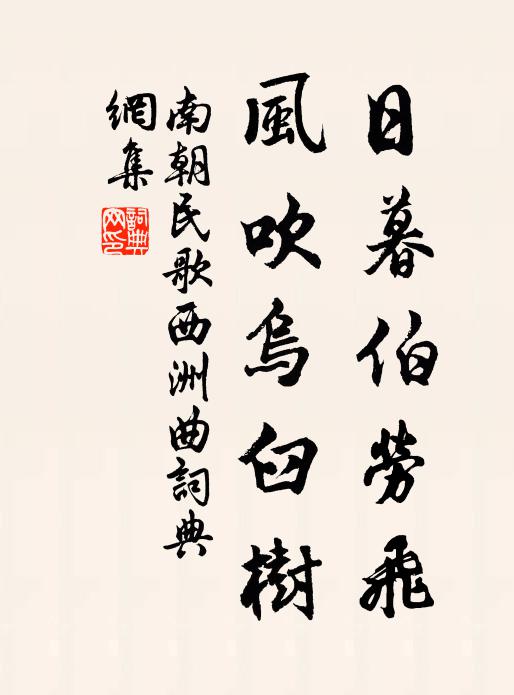 日暮伯勞飛
風吹烏臼樹
南朝民歌西洲曲詞典
網集
詞典
网印